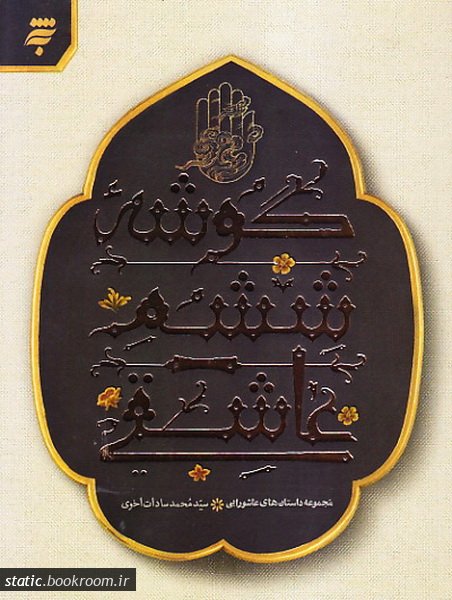 گوشهٔ
ششم
عاشقی
مجموعه داستان‌های عاشورایی سیّد محمد سادات اخوی
static.bookroom.ir